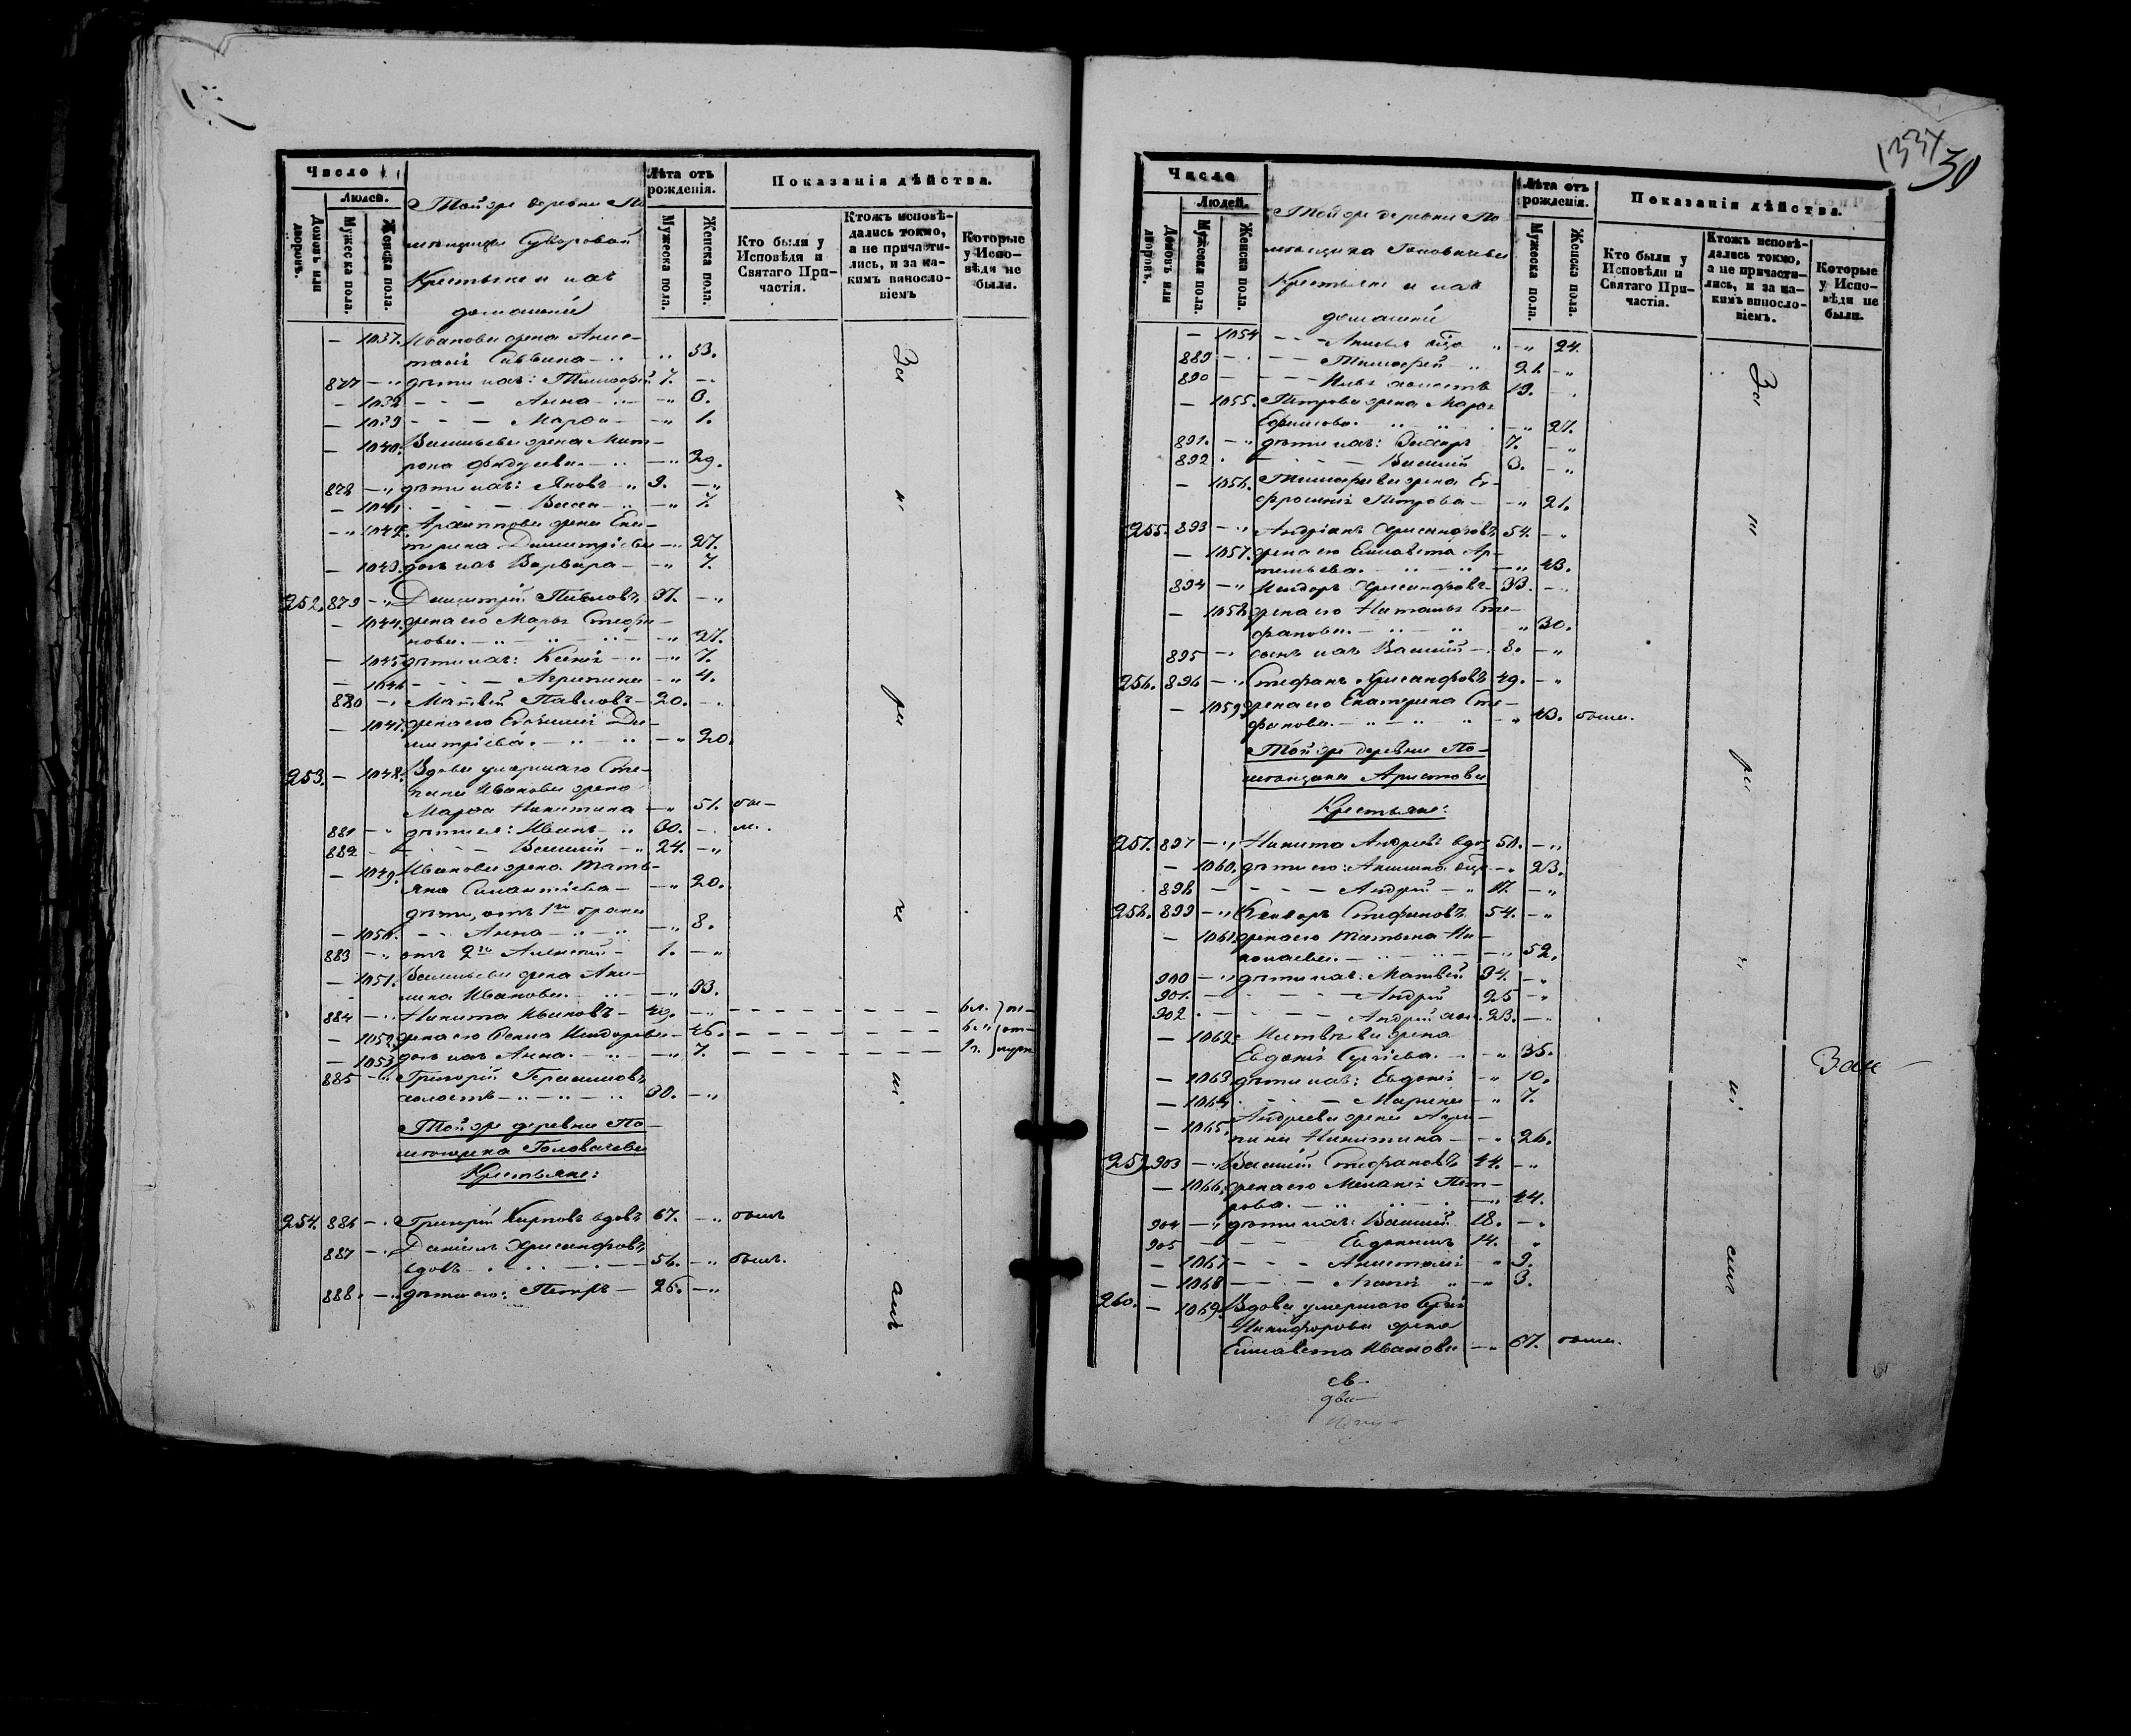 Число
Людей.
Домовъ или дворовъ.
Мужеска пола.
Женска пола.
Тойже деревни По
мѣщицы Суворовой
Крестьяне и ихъ
домашніи
Лѣта отъ рожденія.
Мужеска пола.
Женска пола.
Показанія дѣйства.
Кто были у Исповѣди и Святаго Причастія.
Ктожъ исповѣ-дались токмо, а не причасти-лись, и за ка-кимъ винословіемъ
Которые у Испо-вѣди не были.
— 1037. Иванова жена Анис-
тасія Саввина — „ 33.
877 — „ дѣти ихъ: Тимофей 7. —
— 1038 — — — Анна — „ 6.
— 1039 — — — Марѳа — „ 1.
— 1040. Васильева жена Мат-
рона Фадеева. — „ 29.
878 — „ дѣти ихъ: Яковъ — „ 9. — „
— 1041 — — — Васса — „ 7.
— „ 1042. Архиппова жена Ека-
терина Димитріева — „ 27.
— 1043. дочь ихъ Варвара — — „ 7.
252. 879 — „ Димитрій Павловъ 37. — „
— 1044. жена его Марья Стефа-
нова. — „ 27.
— 1045 дѣти ихъ: Ксенія — „ — „ 7.
— 1046 — — — Агрипина — „ 4.
880 — „ Матвей Павловъ — 20. —
— 1047. жена его Евѳимія Ди-
митріева. — „ 20.
253. — 1048. Вдова умершаго Сте-
пана Иванова жена
Марѳа Никитина — „ 51. бы-
881 — „ дѣти ея: Иванъ — „ 30. — ли.
882 — — — Василій — „ 24. — „
— 1049. Иванова жена Тать-
яна Силантіева — — „ 20.
дѣти, отъ 1го брака
— 1050. — — Анна — „ — „ 8.
883 — „ отъ 2го Алексей — 1. — „
— 1051. Васильева жена Аки-
лина Иванова. — „ 33.
884 — „ Никита Ивановъ — 49. —
— 1052. жена его Ѳекла Исидорова — 46.
— 1053 дочь ихъ Анна. — „ 7.
885 — „ Григорій Герасимовъ
холостъ — „ 30. — „
Тойже деревни По-
мѣщика Головачева
Крестьяне:
254. 886 — „ Григорій Карповъ вдовъ 67. — „ былъ
887 — „ Даніилъ Хрисанфовъ
вдовъ — 56. — „ былъ.
888. — „ дѣти его: Петръ — 26. — „
За
не
ра
че
ні
емъ
30
Число
Людей.
Домовъ или дворовъ.
Мужеска пола.
Женска пола.
Тойже деревни По
мѣщика Головачева
Крестьяне и ихъ
домашніи
Лѣта отъ рожденія.
Мужеска пола.
Женска пола.
Показанія дѣйства.
Кто были у Исповѣди и Святаго Причастія.
Ктожъ исповѣ-дались токмо, а не причасти-лись, и за ка-кимъ винословіемъ.
Которые у Испо-вѣди не были.
— 1054 — — „ — „ 24.
889 — — — Тимофей „ 21 — „
890 — — — Илья холостъ 19. —
— 1055. Петрова жена Марья
Ефимова. — „ 27.
891. — „ дѣти ихъ: Захаръ 7. — „
892 — — — Василій 3. — „
— 1056. Тимофеева жена Ев-
фросинія Петрова — — „ 21.
255. 893 — „ Андріанъ Хрисанфовъ 54. — „
— 1057. жена его Елисавета Ар-
темьева. — „ 43.
894 — „ Исидоръ Хрисанфовъ — 33. —
— 1058 жена его Наталья Сте-
фанова. — „ 30.
895 — „ сынъ ихъ Василій — 8. — „
256. 896 — „ Стефанъ Хрисанфовъ 49. — „
— 1059 жена его Екатерина Сте-
фанова. — „ 43. была.
Тойже деревни По-
мѣщика Аристова
Крестьяне:
257. 897 — „ Никита Андреевъ вдов 50. — „
— 1060. дѣти его: Акилина — „ 23.
898 — — — Андрей — „ 17. — „
258. 899 — „ Стефановъ 54. — „
— 1061. жена его Татьяна Ни-
колаева. — „ 52.
900 — „ дѣти ихъ: Матвей 34. — „
901. — — — Андрей 25 — „
902 — — — Андрей хол. 23. — „
— 1062. Матвеева жена
Евдокія Сергіева. — „ 35.
— 1063 дѣти ихъ: Евдокія — „ 10.
— 1064 — — — Марина — „ 7.
— 1065. Андреева жена Агри-
пина Никитина — — „ 26.
259. 903 — „ Василій Стефановъ 44. — „
— 1066. жена его Меланія Пет-
рова. — „ 44.
904 — „ дѣти ихъ: Василій 18. — „
905 — — — Евдокимъ 14. „
— 1067 — — — Анастасія — „ 9.
— 1068 — — — Агапія „ — „ 3.
260. — 1069. Вдова умершаго
Никифорова жена
Елисавета Иванова — „ 67. была.
За
не
ра
че
ні
емъ